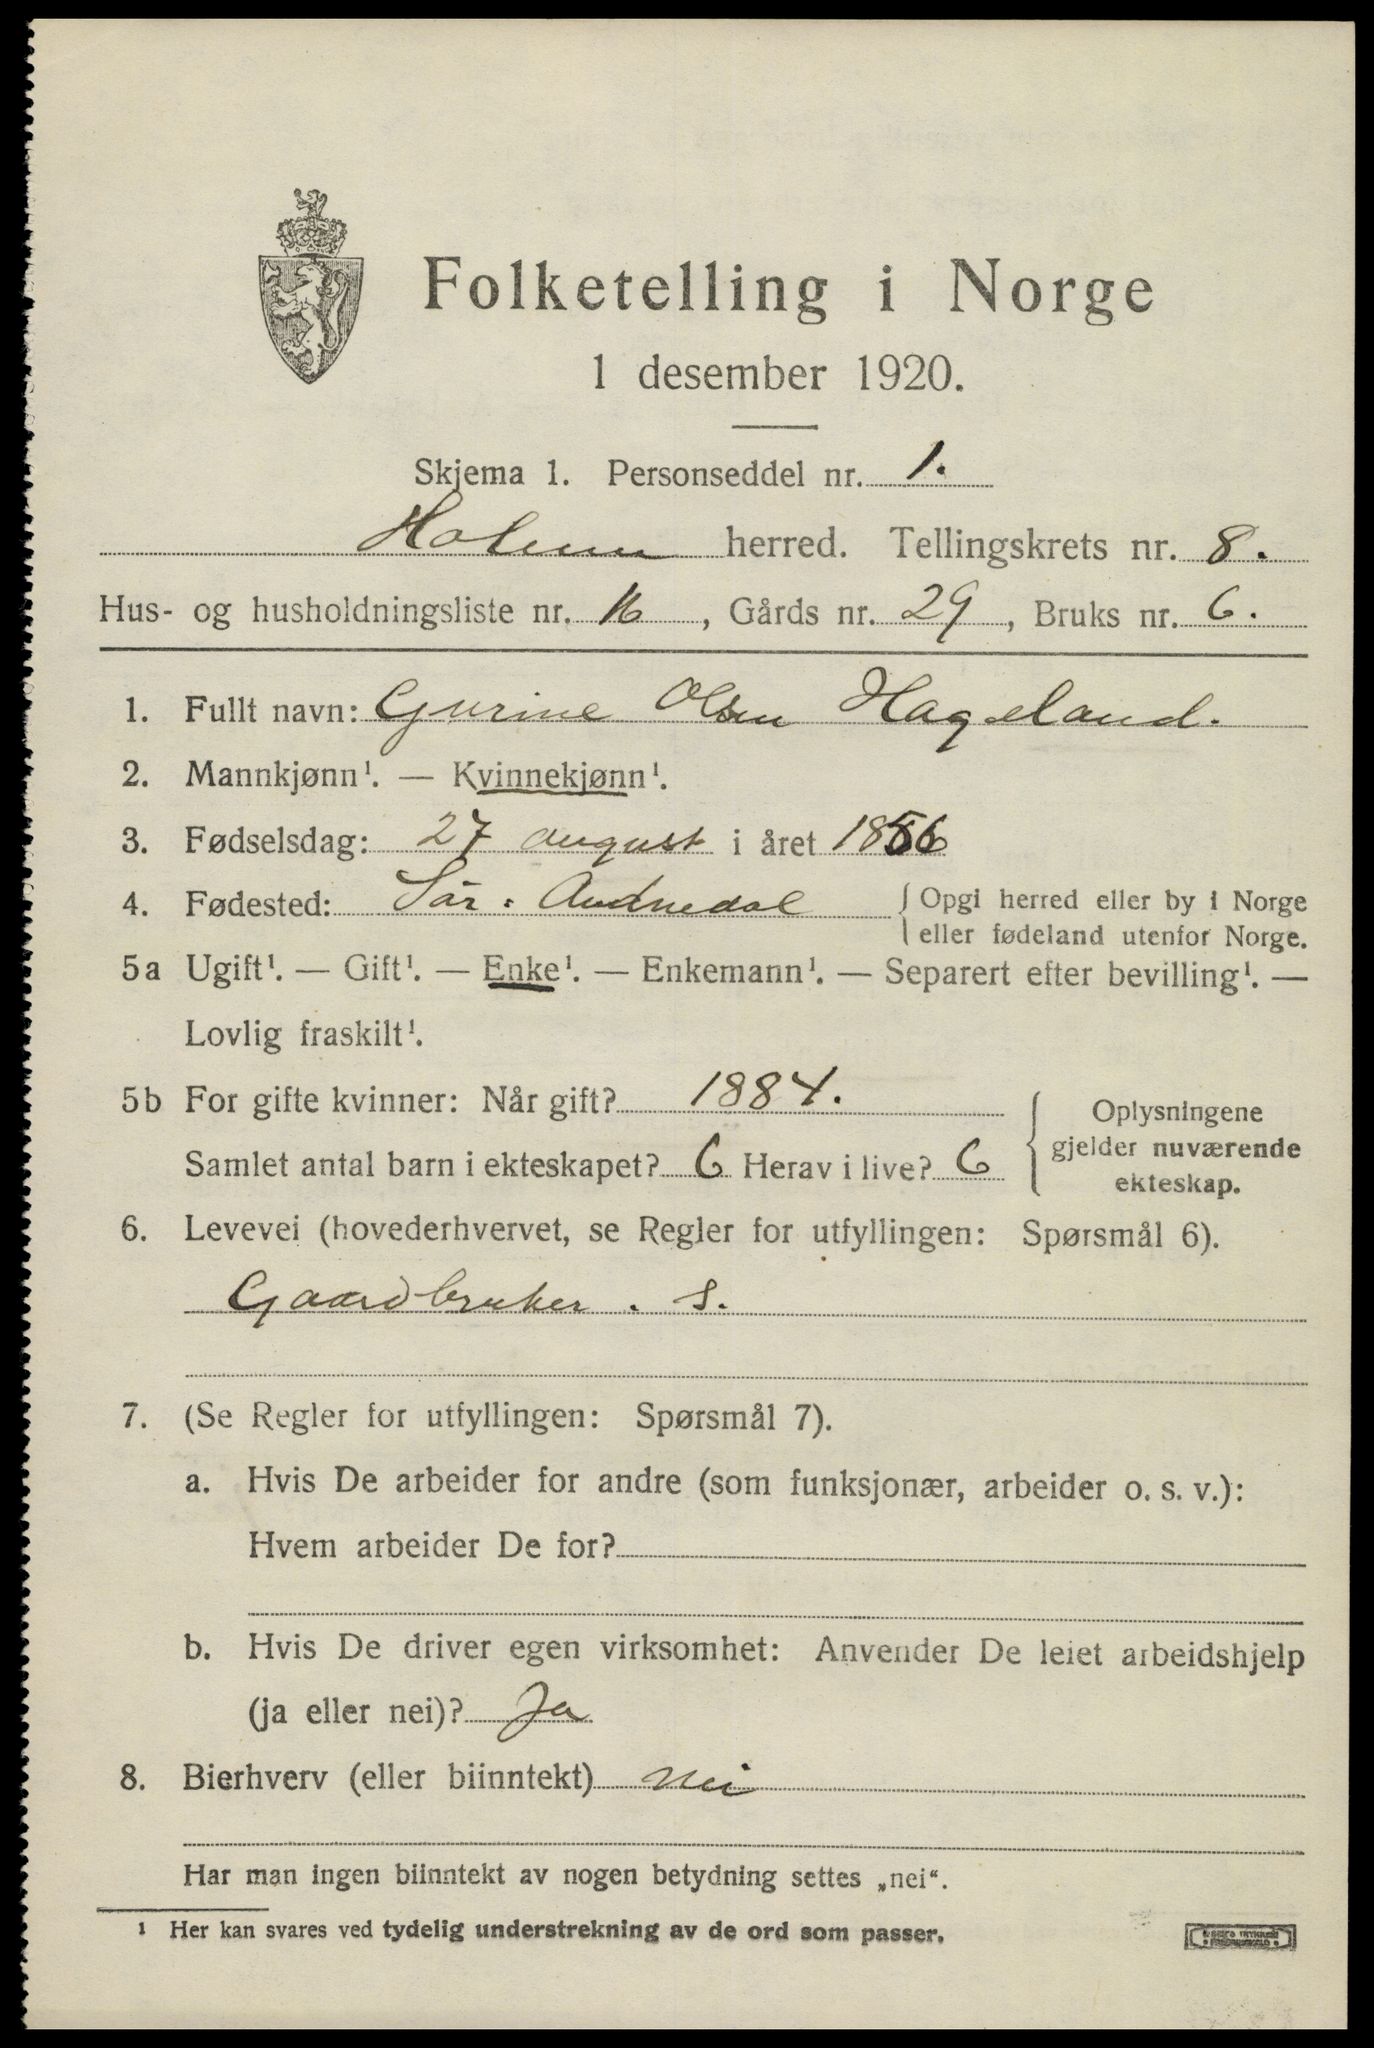 Folketelling i Norge
1 desember 1920.
Skjema 1. Personseddel nr. 1.
Holum herred. Tellingskrets nr. 8.
Hus- og husholdningsliste nr. 16, Gårds nr. 29, Bruks nr. 6.
1. Fullt navn: Gurine Olsen Hageland.
2. Mannkjønn¹. — Kvinnekjønn¹.
3. Fødselsdag: 27 august i året 1856
4. Fødested: Sør. Audnedal { Opgi herred eller by i Norge
eller fødeland utenfor Norge.
5a Ugift¹. — Gift¹. — Enke¹. — Enkemann¹. — Separert efter bevilling¹. —
Lovlig fraskilt¹.
5b For gifte kvinner: Når gift? 1884. { Oplysningene
gjelder nuværende
ekteskap.
Samlet antal barn i ekteskapet? 6 Herav i live? 6
6. Levevei (hovederhvervet, se Regler for utfyllingen: Spørsmål 6).
Gaardbruker. S.
7. (Se Regler for utfyllingen: Spørsmål 7).
a. Hvis De arbeider for andre (som funksjonær, arbeider o. s. v.):
Hvem arbeider De for?
b. Hvis De driver egen virksomhet: Anvender De leiet arbeidshjelp
(ja eller nei)? Ja
8. Bierhverv (eller biinntekt) nei
Har man ingen biinntekt av nogen betydning settes „nei“.
¹ Her kan svares ved tydelig understrekning av de ord som passer.